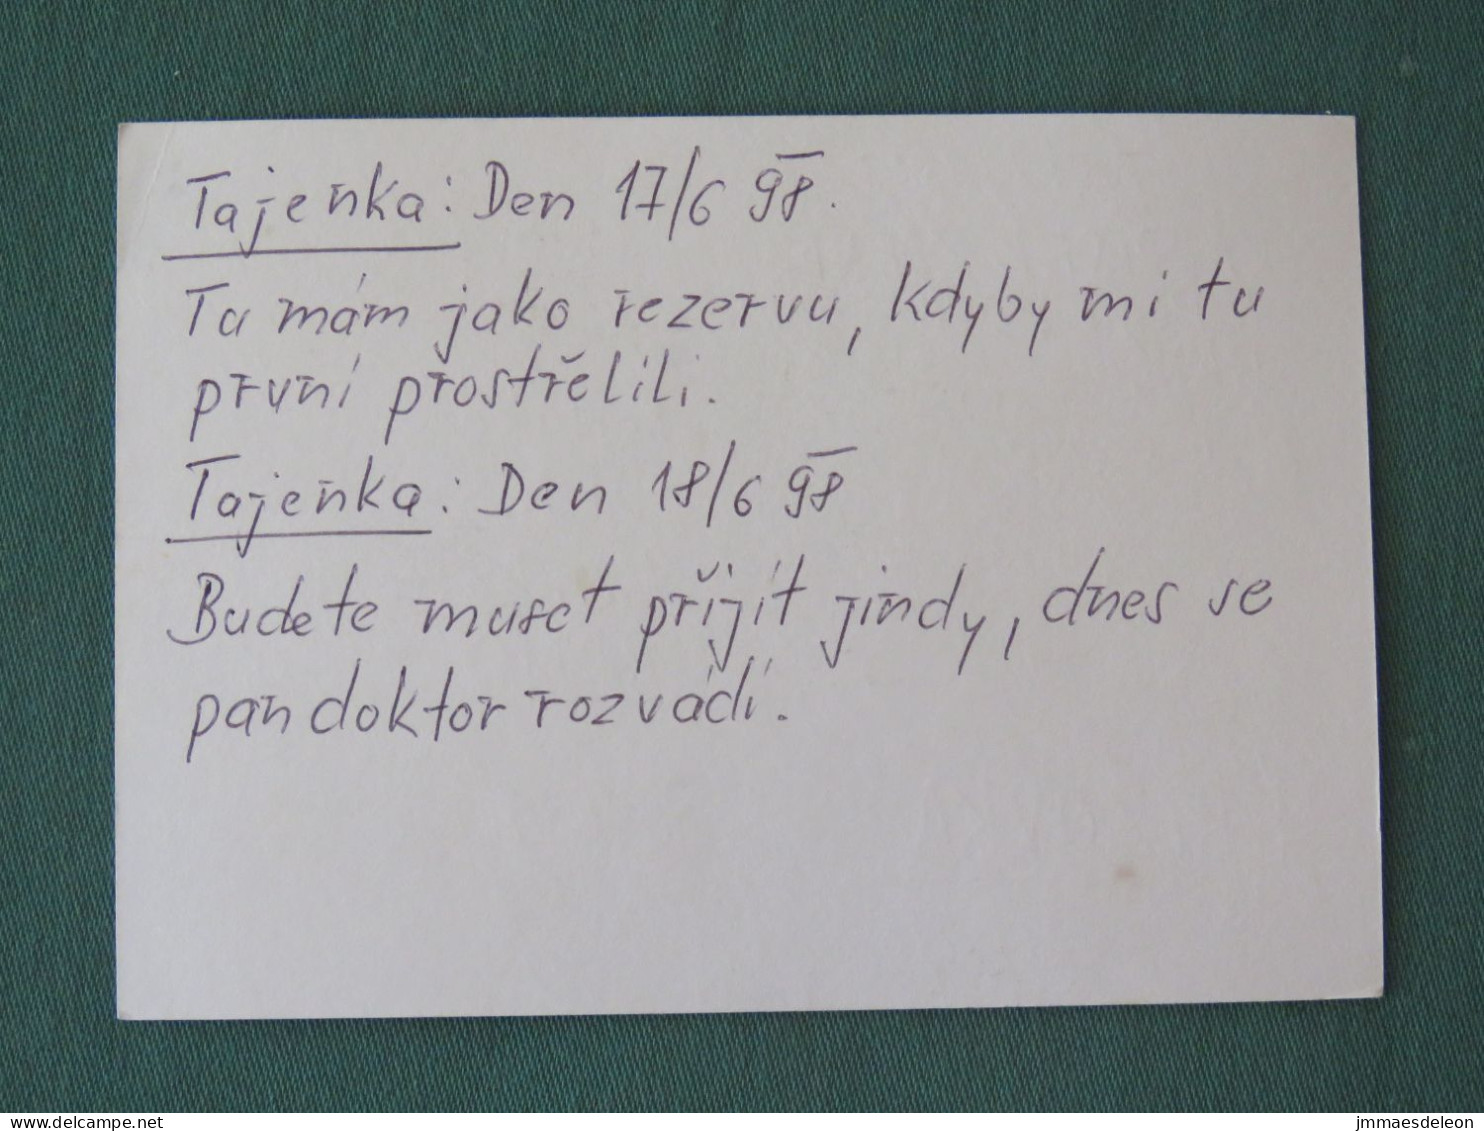 Tajenka: Den 17/6 98.
Tu mám jako rezervu, kdyby mi tu
první prostřelili.
Tajenka: Den 18/6 98
Budete muset přijít jindy, dnes se
pan doktor rozvádí.
delcampe.net
jmmaesdeleon